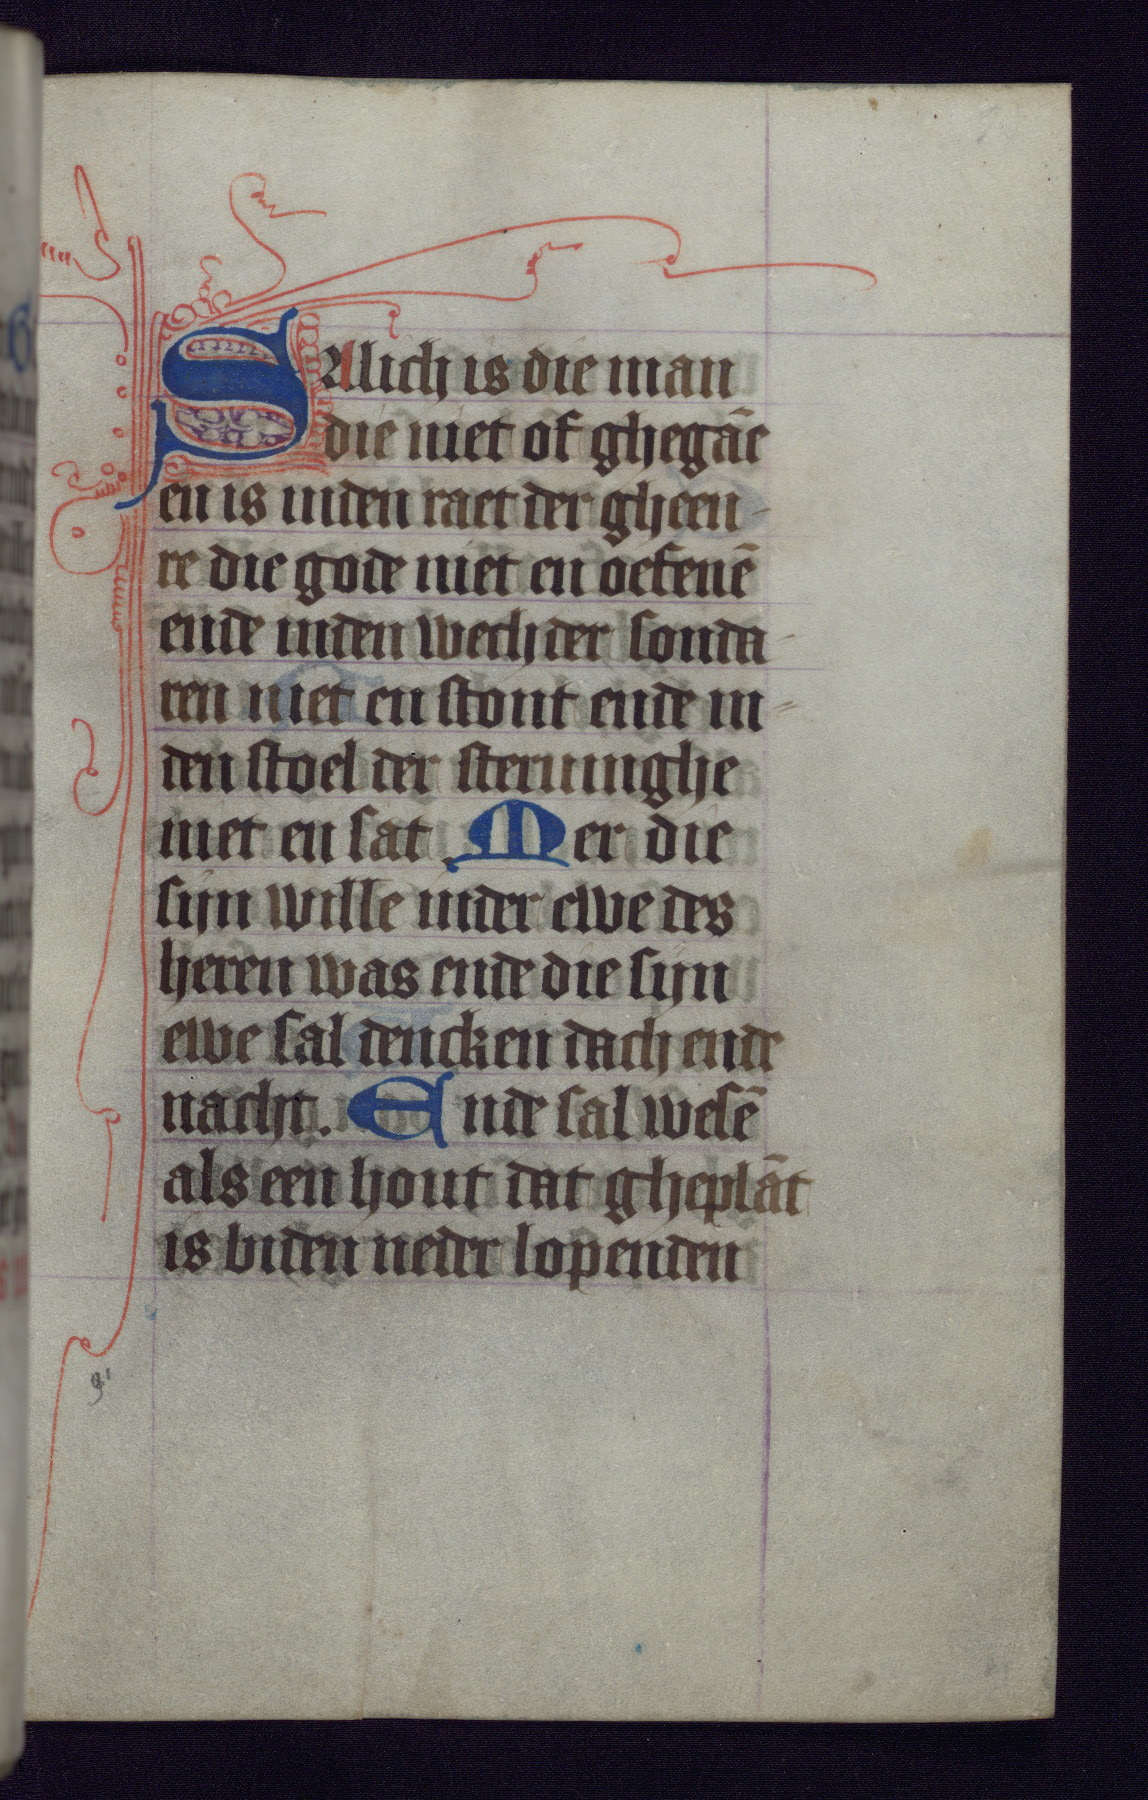 SAlich is die man
die niet of ghegāc
en is inden raet der gheen-
re die gode niet en oefenē
ende inden wech der sonda-
ren niet en stont ende in-
den stoel der steruinghe
niet en sat. Mer die
sijn wille inder ewe des
heren was ende die sijn
ewe sal dencken dach ende
nacht. Ende sal wesē
als een hout dat gheplāt
is biden neder lopenden